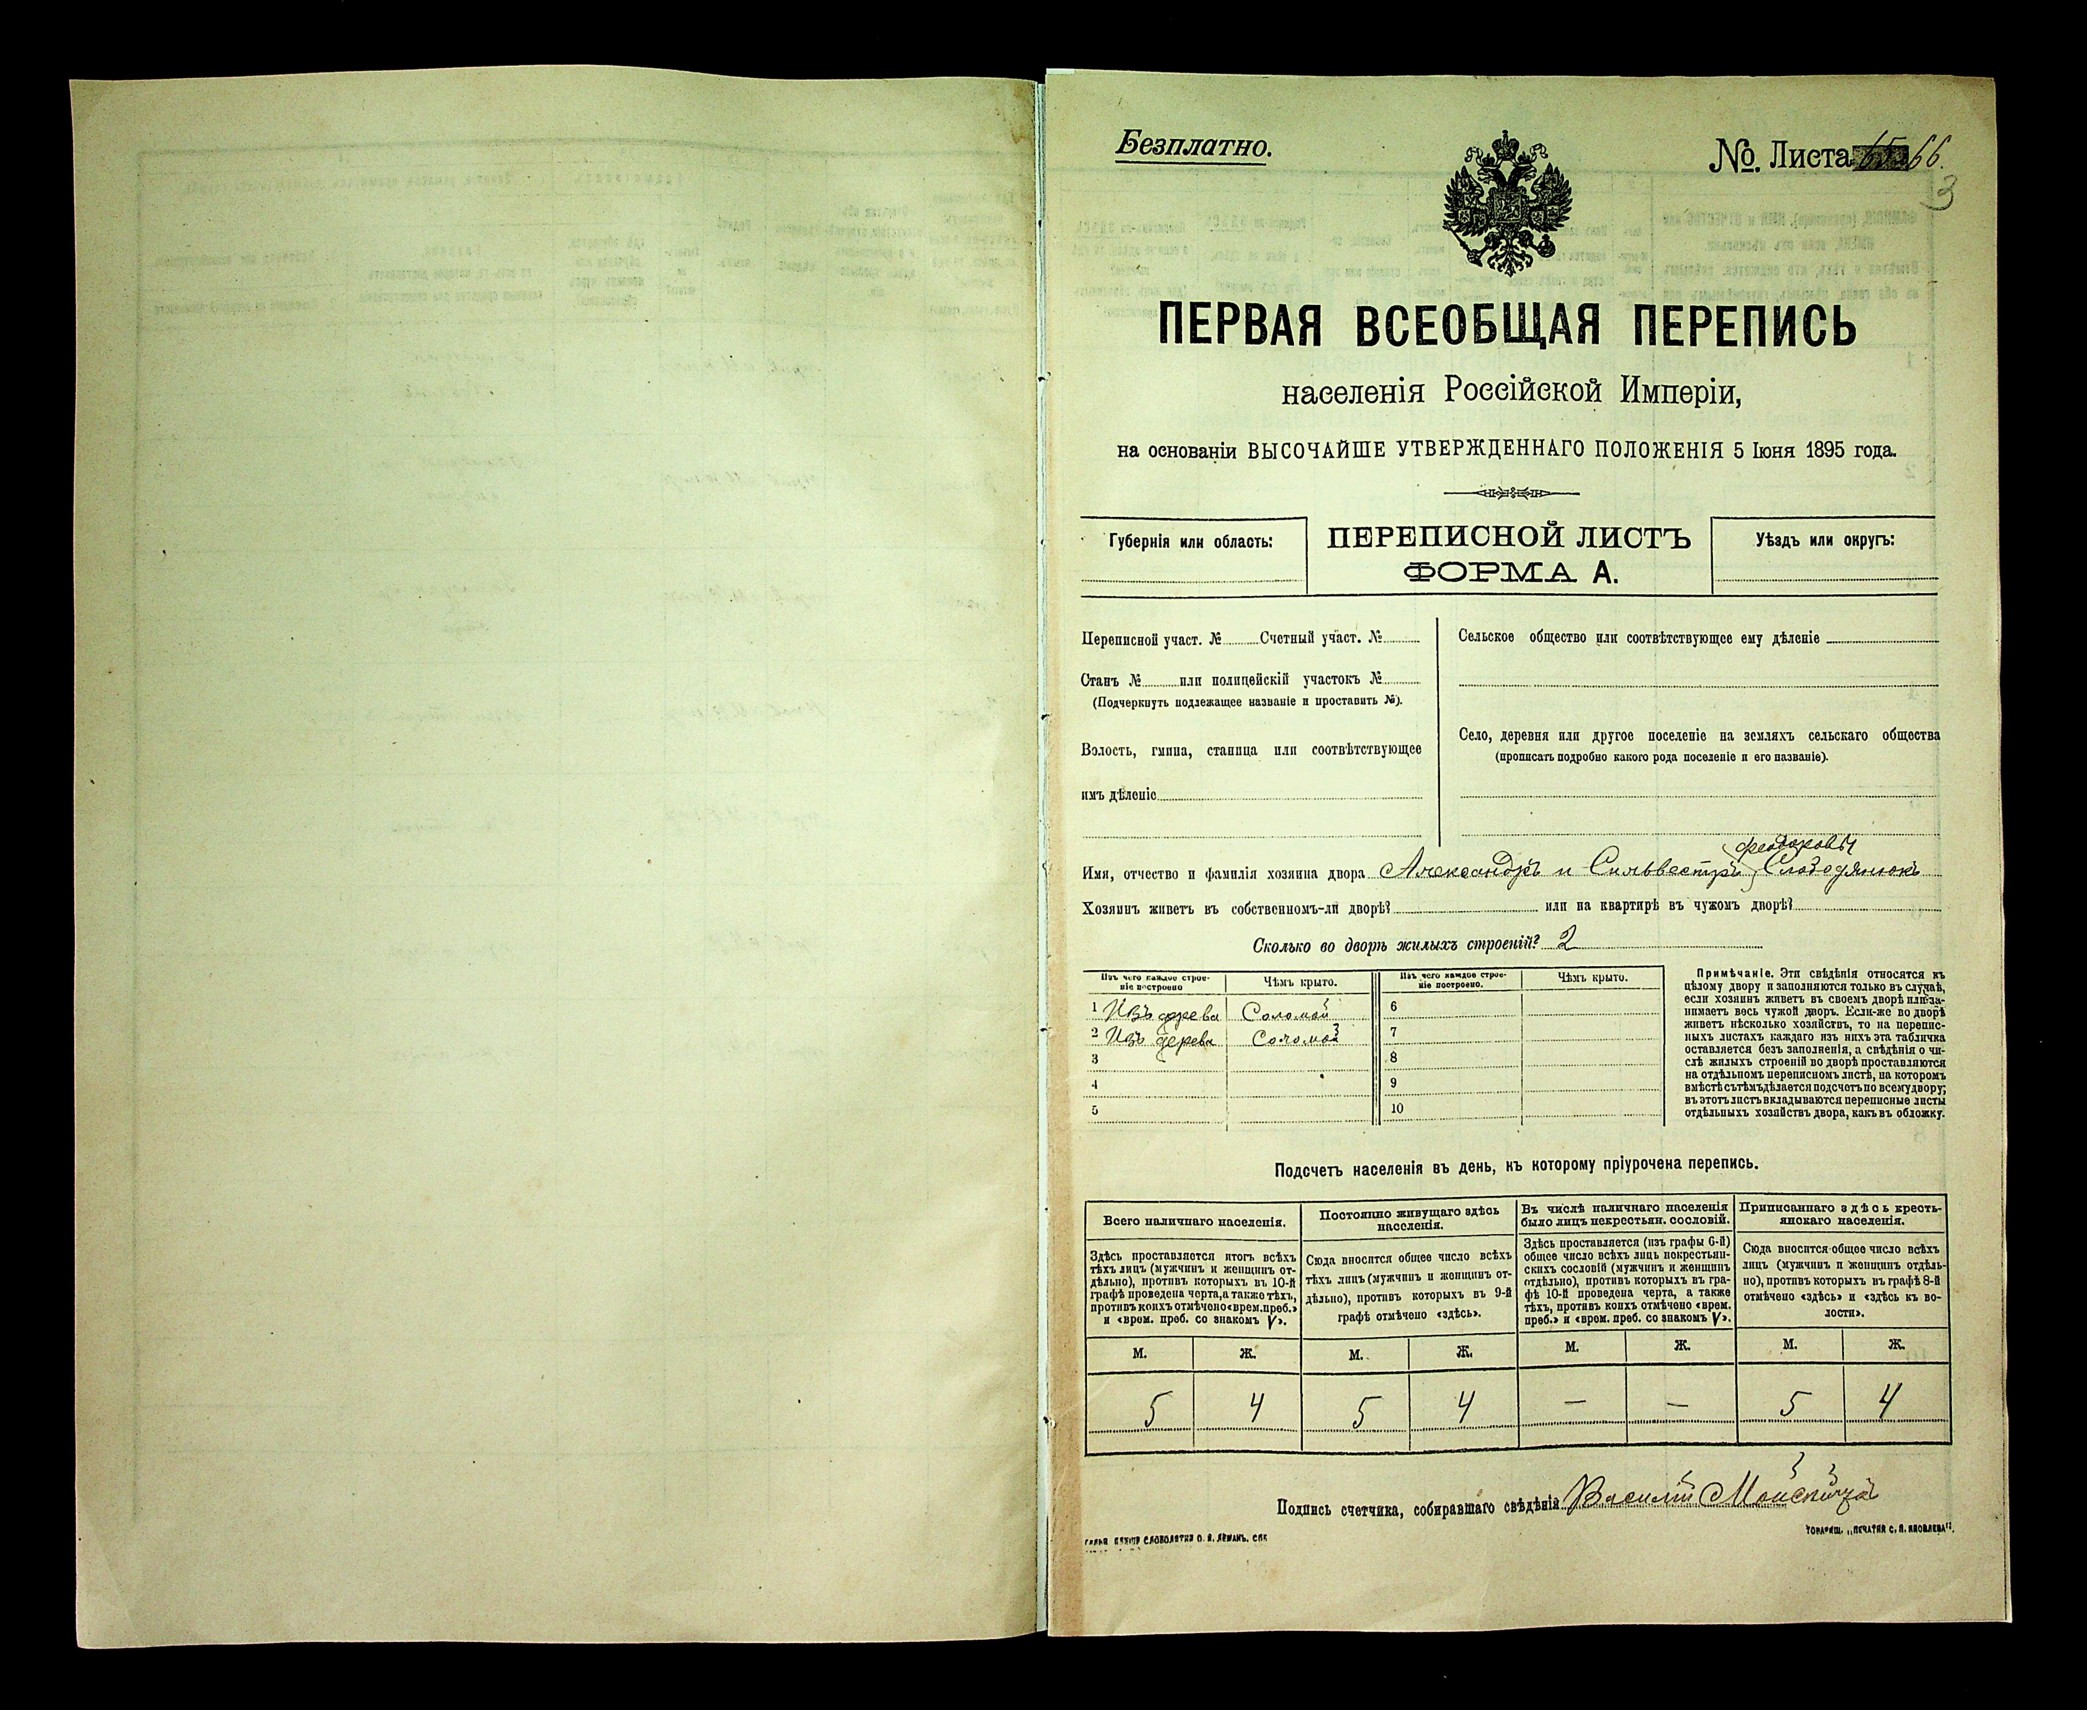 Безплатно.
№. Листа 66.
3
ПЕРВАЯ ВСЕОБЩАЯ ПЕРЕПИСЬ
населенія Россійской Имперіи,
на основаніи ВЫСОЧАЙШЕ УТВЕРЖДЕННАГО ПОЛОЖЕНІЯ 5 Іюня 1895 года.
Губернія или область:
ПЕРЕПИСНОЙ ЛИСТЪ
ФОРМА А.
Уѣздъ или округъ:
Переписной участ. № Счетный участ. №
Станъ № или полицейскій участокъ №
(Подчеркнуть подлежащее названіе и проставить №).
Волость, гмина, станица или соотвѣтствующее
имъ дѣленіе
Сельское общество или соотвѣтствующее ему дѣленіе
Село, деревня или другое поселеніе на земляхъ сельскаго общества
(прописать подробно какого рода поселеніе и его названіе).
Феодоровы
Имя, отчество и фамилія хозяина двора Александръ и Сильвестръ Слободянюкъ
Хозяинъ живетъ въ собственномъ-ли дворѣ? или на квартирѣ въ чужомъ дворѣ?
Сколько во дворѣ жилыхъ строеній? 2
Изъ чего каждое строе-
ніе построено
Чѣмъ крыто.
1 Изъ дерева Соломой
2 Изъ дерева Соломой
3
4
5
Изъ чего каждое строе-
ніе построено.
Чѣмъ крыто.
6
7
8
9
10
Примѣчаніе. Эти свѣдѣнія относятся къ
цѣлому двору и заполняются только въ случаѣ,
если хозяинъ живетъ въ своемъ дворѣ или за-
нимаетъ весь чужой дворъ. Если-же во дворѣ
живетъ нѣсколько хозяйствъ, то на перепис-
ныхъ листахъ каждаго изъ нихъ эта табличка
оставляется безъ заполненія, а свѣдѣнія о чи-
слѣ жилыхъ строеній во дворѣ проставляются
на отдѣльномъ переписномъ листѣ, на которомъ
вмѣстѣ съ тѣмъ дѣлается подсчетъ по всему двору;
въ этотъ листъ вкладываются переписные листы
отдѣльныхъ хозяйствъ двора, какъ въ обложку.
Подсчетъ населенія въ день, къ которому пріурочена перепись.
Всего наличнаго населенія.
Здѣсь проставляется итогъ всѣхъ
тѣхъ лицъ (мужчинъ и женщинъ от-
дѣльно), противъ которыхъ въ 10-й
графѣ проведена черта, а также тѣхъ,
противъ коихъ отмѣчено «врем. преб.»
и «врем. преб. со знакомъ V».
Постоянно живущаго здѣсь
населенія.
Сюда вносится общее число всѣхъ
тѣхъ лицъ (мужчинъ и женщинъ от-
дѣльно), противъ которыхъ въ 9-й
графѣ отмѣчено «здѣсь».
Въ числѣ наличнаго населенія
было лицъ некрестьян. сословій.
Здѣсь проставляется (изъ графы 6-й)
общее число всѣхъ лицъ некрестьян-
скихъ сословій (мужчинъ и женщинъ
отдѣльно), противъ которыхъ въ гра-
фѣ 10-й проведена черта, а также
тѣхъ, противъ коихъ отмѣчено «врем.
преб.» и «врем. преб. со знакомъ V».
Приписаннаго здѣсь кресть-
янскаго населенія.
Сюда вносится общее число всѣхъ
лицъ (мужчинъ и женщинъ отдѣль-
но), противъ которыхъ въ графѣ 8-й
отмѣчено «здѣсь» и «здѣсь къ во-
лости».
М. Ж. М. Ж. М. Ж. М. Ж.
5 4 5 4 — — 5 4
Подпись счетчика, собиравшаго свѣдѣнія Василій
СЛОВОЛИТНИ О. И. ЛЕМАНЪ. СПБ
ТОВАРИЩ. „ПЕЧАТНЯ С. П. ЯКОВЛЕВА".